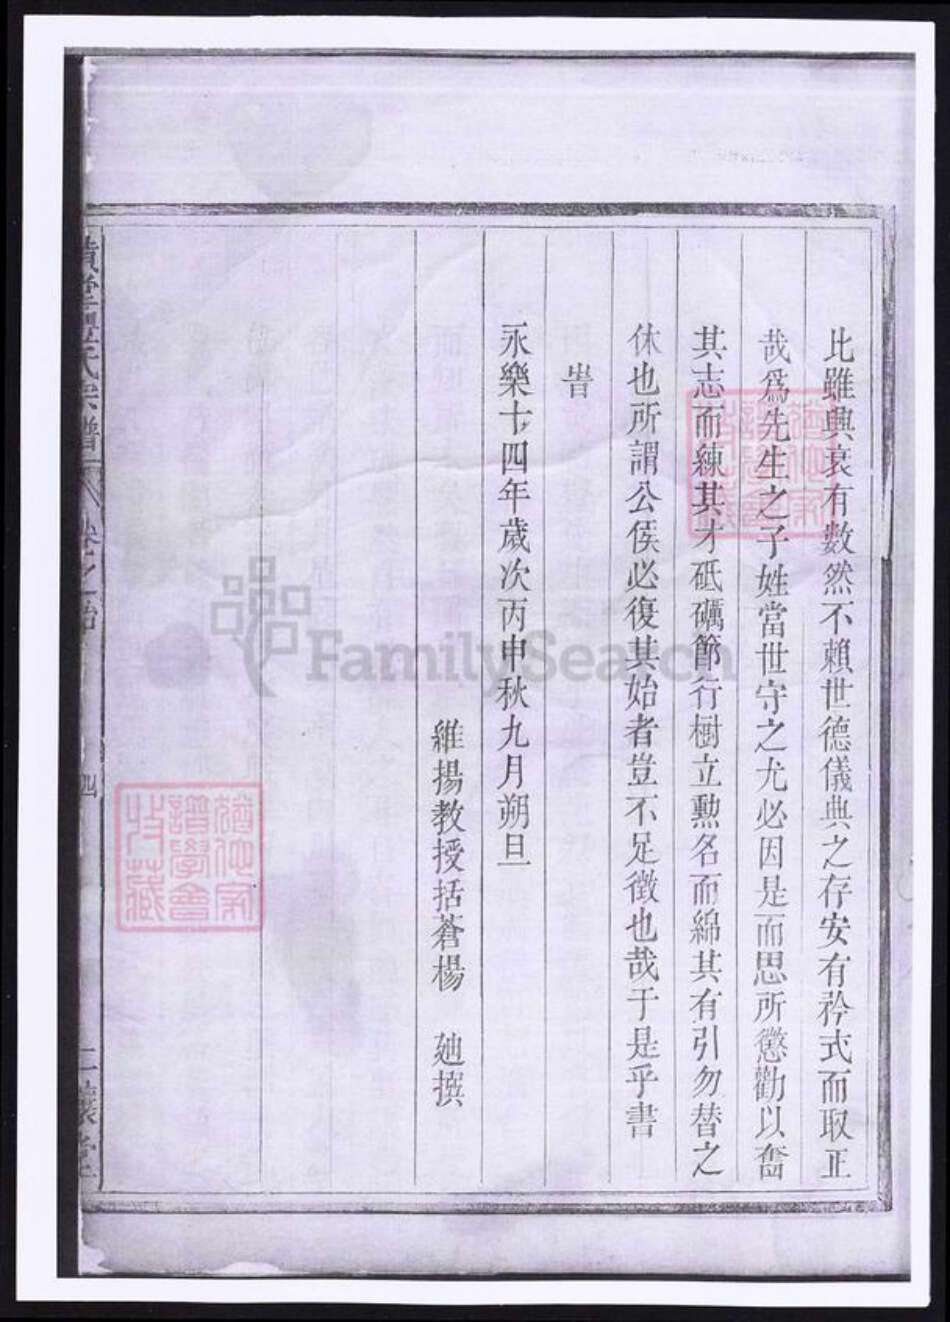 比雖興衰有數然不賴世德儀典之存安有矜式而取正
哉爲先生之子姓當世守之尤必因是而思所懲勸以奮
其志而練其才砥礪節行樹立勲名而綿其有引勿替之
休也所謂公侯必復其始者豈不足徵也哉于是乎書
旹
永樂十四年歲次丙申秋九月朔旦
維揚教授括蒼楊　廸撰
氏宗譜 卷之 四
FamilySearch
譜學會
收藏